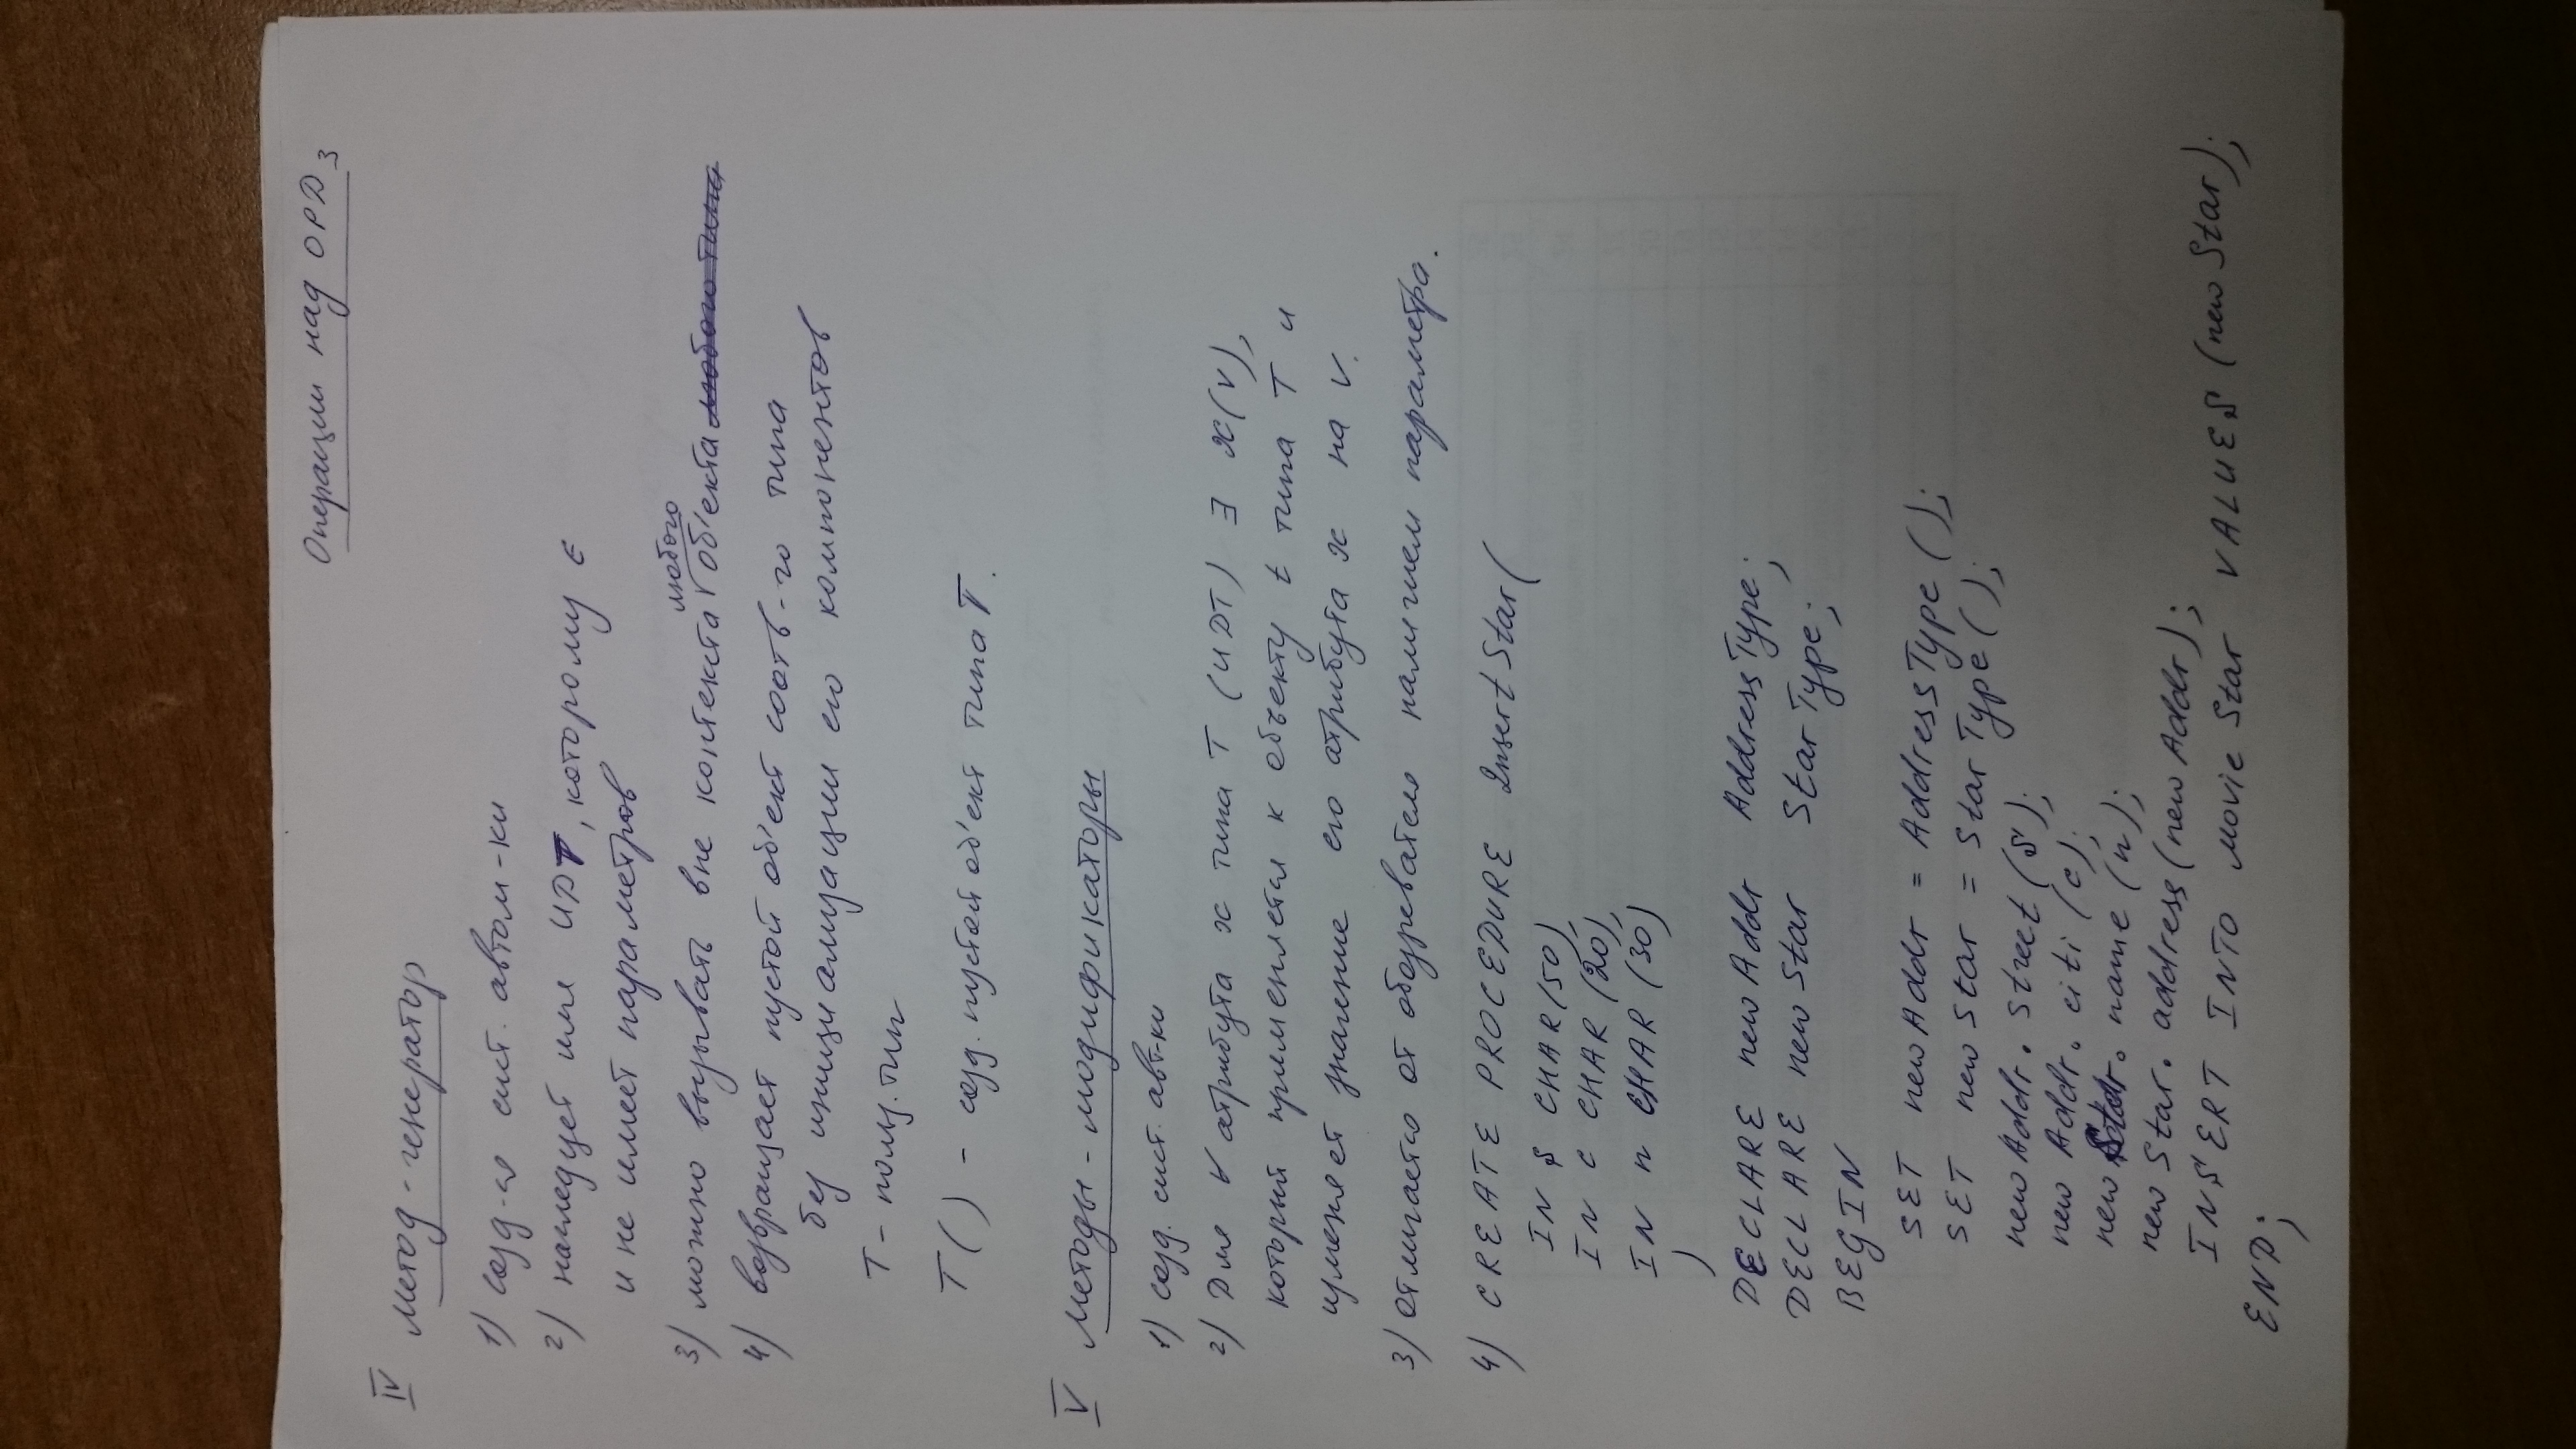 Операции над ОРД 3
IV Метод-генератор
1) созд-ся сист. автом-ки
2) наследует имя UDT, которому ∈
и не имеет параметров
3) можно вызывать вне контекста любого об'екта любого типа
4) возвращает пустой об'ект соотв-го типа
без инициализации его компонентов
T - польз. тип
T() - созд. пустой об'ект типа T.
V Методы-модификаторы
1) созд. сист. авт-ки
2) Для ∀ атрибута x типа T (UDT) ∃ x(v),
который применяется к объекту t типа T и
изменяет значение его атрибута x на v.
3) отличается от обозревателя наличием параметра.
4) CREATE PROCEDURE InsertStar(
IN S CHAR(50),
IN c CHAR (20),
IN n CHAR (30)
)
DECLARE newAddr AddressType;
DECLARE newStar StarType;
BEGIN
SET newAddr = AddressType();
SET newStar = StarType();
newAddr. street(S);
newAddr. citi (c);
newStar. name (n);
newStar. address(newAddr);
INSERT INTO MovieStar VALUES (newStar);
END;